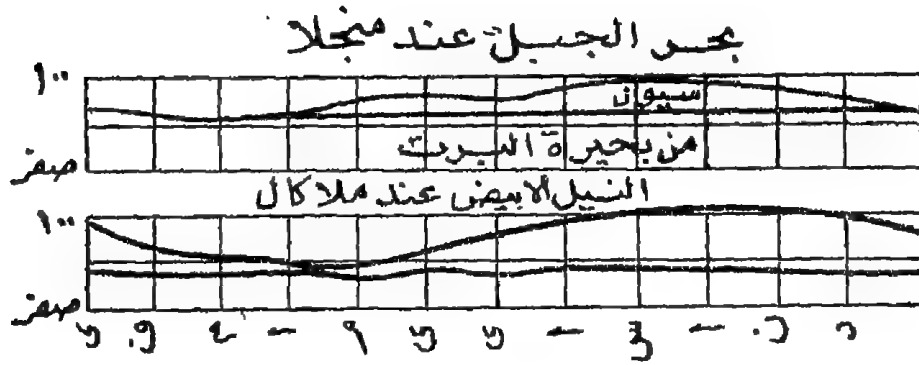 بحر الجبل عند منجلا
١٠٠
سيول
من بحيرة البرت
صفر
النيل الابيض عند ملاكال
١٠٠
صفر